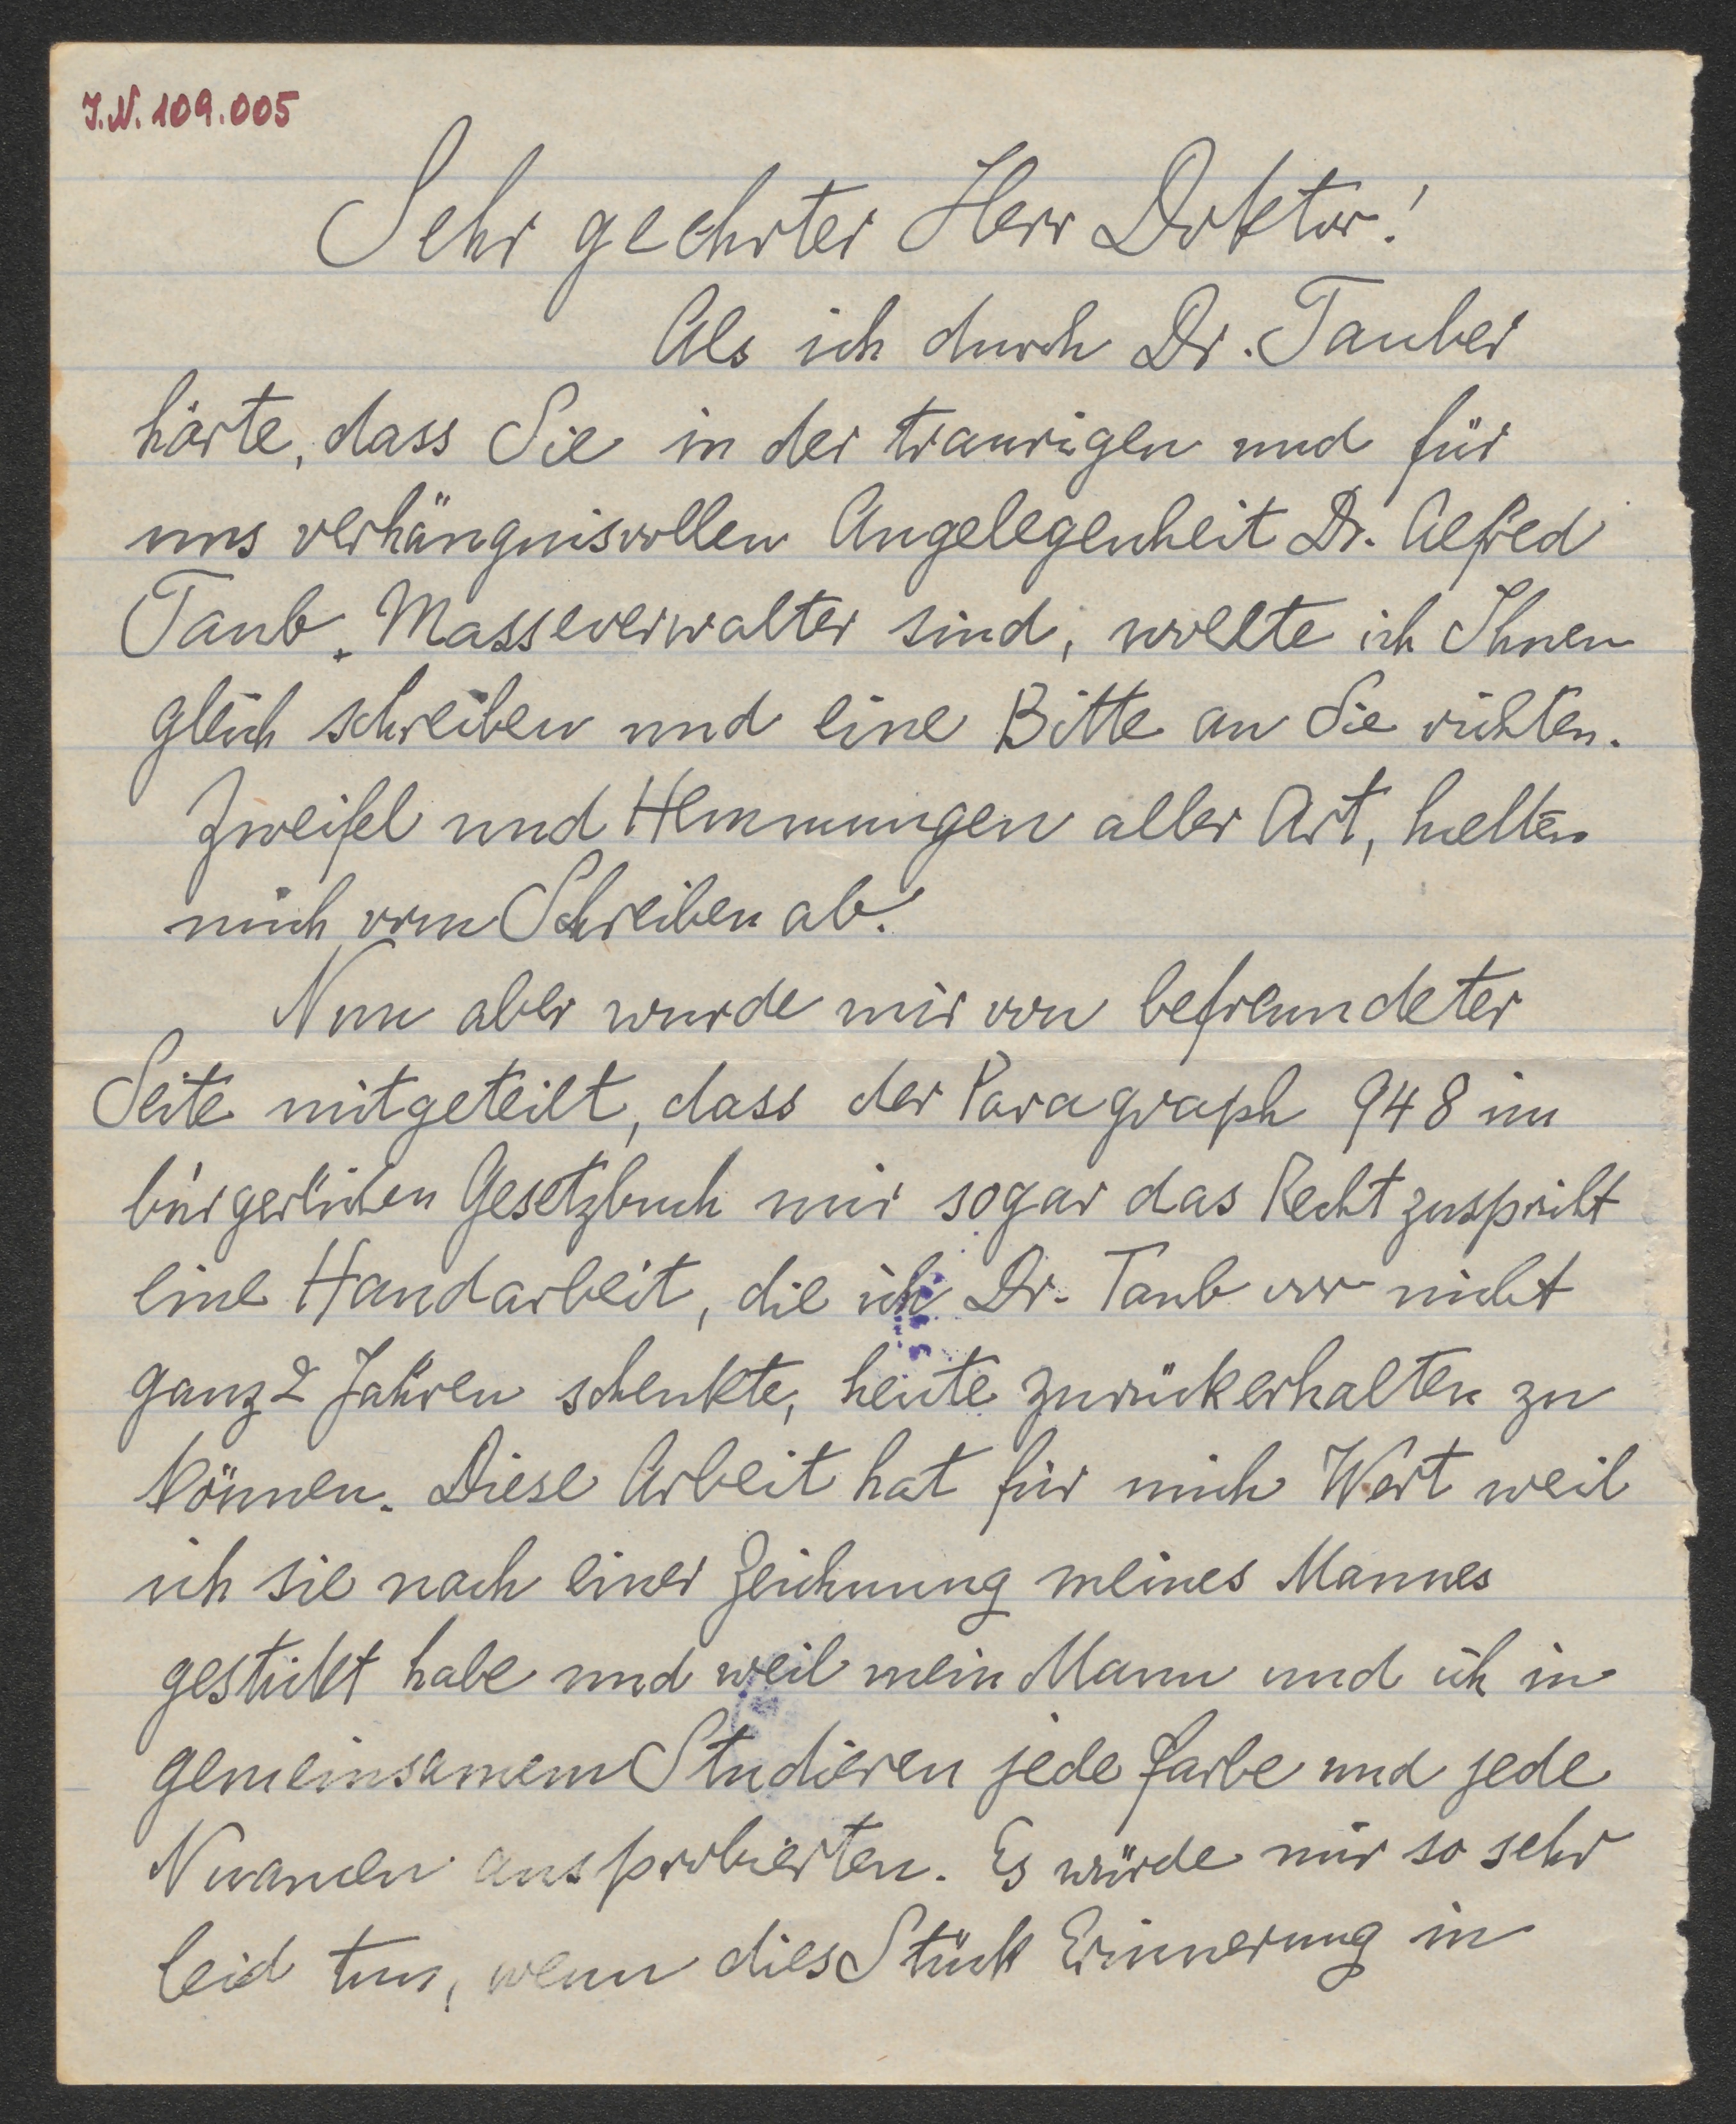 J.N. 109.005
Sehr geehrter Herr Doktor!
Als ich durch Dr. Tauber
hörte, dass Sie in der traurigen und für
uns verhängnisvollen Angelegenheit Dr. Alfred
Taub, Masseverwalter sind, wollte ich Ihnen
gleich schreiben und eine Bitte an Sie richten.
Zweifel und Hemmungen aller Art, hielten
mich vom Schreiben ab.
Nun aber wurde mir von befreundeter
Seite mitgeteilt, dass der Paragraph 948 im
bürgerlichen Gesetzbuch mir sogar das Recht zuspricht
eine Handarbeit, die ich Dr. Taub vor nicht
ganz 2 Jahren schenkte, heute zurückerhalten zu
können. Diese Arbeit hat für mich Wert weil
ich sie nach einer Zeichnung meines Mannes
gestickt habe und weil mein Mann und ich in
gemeinsamem Studieren jede Farbe und jede
Nuancen ausprobierten. Es würde mir so sehr
leid tun, wenn dies Stück Erinnerung in